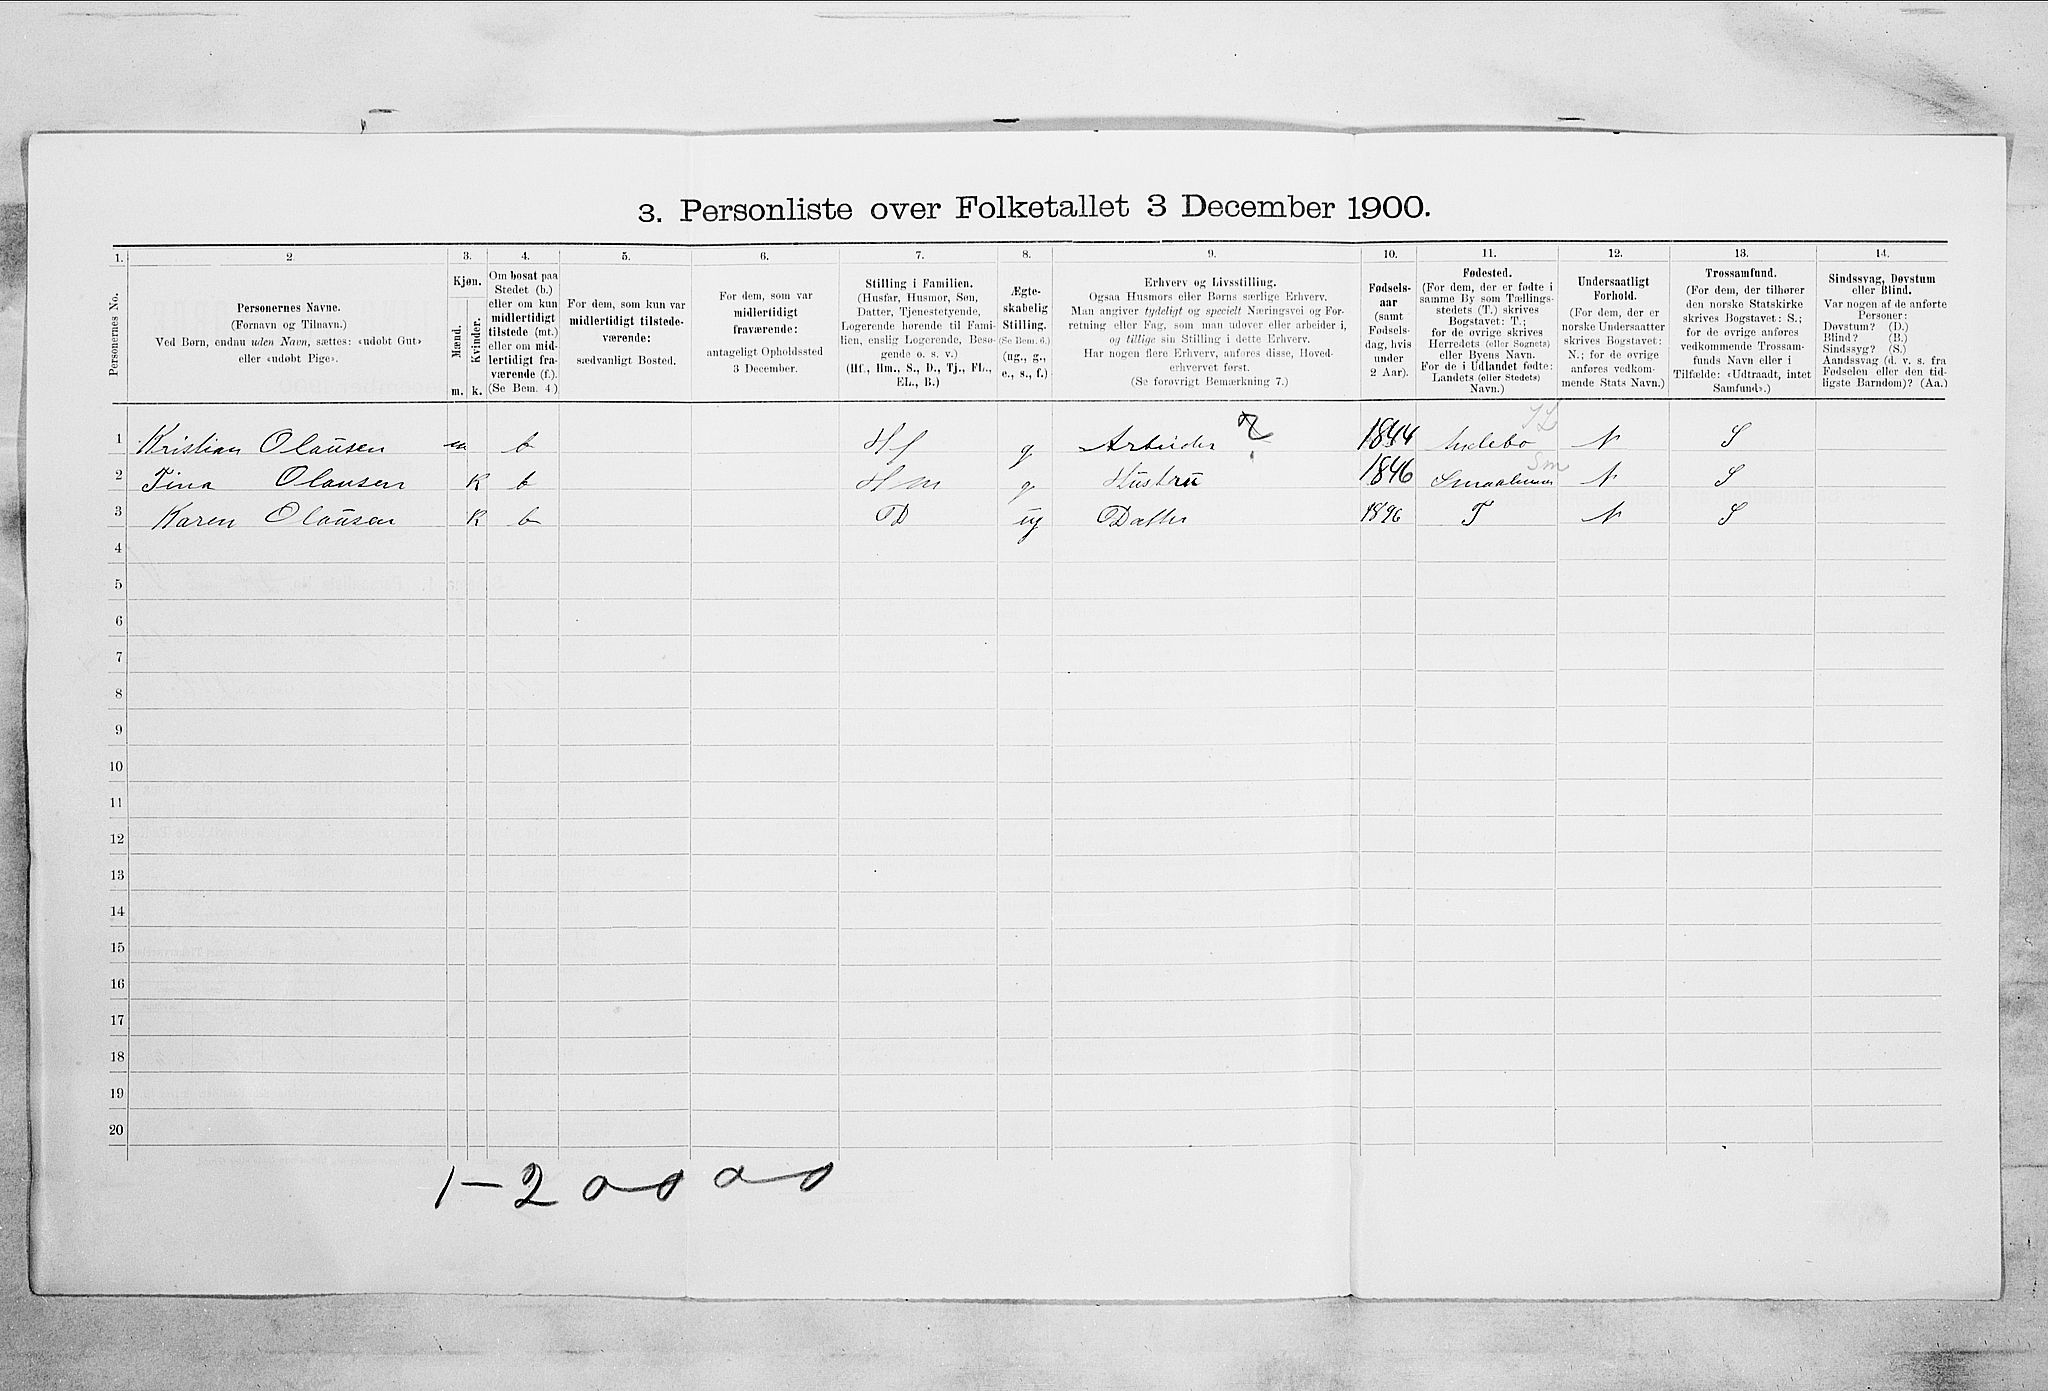 3. Personliste over Folketallet 3 December 1900.
1. 2. 3. 4. 5. 6. 7. 8. 9. 10. 11. 12. 13. 14.
Personernes No.
Personernes Navne.
(Fornavn og Tilnavn.)
Ved Børn, endnu uden Navn, sættes: «udøbt Gut»
eller «udøbt Pige».
Kjøn.
Mænd.
Kvinder.
m. k.
Om bosat paa
Stedet (b.)
eller om kun
midlertidigt
tilstede (mt.)
eller om mid-
lertidigt fra-
værende (f.)
(Se Bem. 4.)
For dem, som kun var
midlertidigt tilstede-
værende:
sædvanligt Bosted.
For dem, som var
midlertidigt
fraværende:
antageligt Opholdssted
3 December.
Stilling i Familien.
(Husfar, Husmor, Søn,
Datter, Tjenestetyende,
Logerende hørende til Fami-
lien, enslig Logerende, Besø-
gende o. s. v.)
(Hf., Hm., S., D., Tj., FL.,
EL., B.)
Ægte-
skabelig
Stilling.
(Se Bem. 6.)
(ug., g.,
e., s., f.)
Erhverv og Livsstilling.
Ogsaa Husmors eller Børns særlige Erhverv.
Man angiver tydeligt og specielt Næringsvei og For-
retning eller Fag, som man udøver eller arbeider i,
og tillige sin Stilling i dette Erhverv.
Har nogen flere Erhverv, anføres disse, Hoved-
erhvervet først.
(Se forøvrigt Bemærkning 7.)
Fødsels-
aar
(samt
Fødsels-
dag, hvis
under
2 Aar).
Fødested.
(For dem, der er fødte i
samme By som Tællings-
stedets (T.) skrives
Bogstavet: T.;
for de øvrige skrives
Herredets (eller Sognets)
eller Byens Navn.
For de i Udlandet fødte:
Landets (eller Stedets)
Navn.)
Undersaatligt
Forhold.
(For dem, der er
norske Undersaatter
skrives Bogstavet:
N.; for de øvrige
anføres vedkom-
mende Stats Navn.)
Trossamfund.
(For dem, der tilhører
den norske Statskirke
skrives Bogstavet: S.;
for de øvrige anføres
vedkommende Trossam-
funds Navn eller i
Tilfælde: «Udtraadt, intet
Samfund».)
Sindssvag, Døvstum
eller Blind.
Var nogen af de anførte
Personer:
Døvstum? (D.)
Blind? (B.)
Sindssyg? (S.)
Aandssvag (d. v. s. fra
Fødselen eller den tid-
ligste Barndom)? (Aa.)
1 Kristian Olausen m b Hf g Arbeider 1844 N S
2 Tina Olausen K b Hm g Hustru 1846 Smaalenene Sm N S
3 Karen Olausen K b D ug Datter 1896 T N S
4
5
6
7
8
9
10
11
12
13
14
15
16
17
18
19
20
1 - 2 0 0 0 0